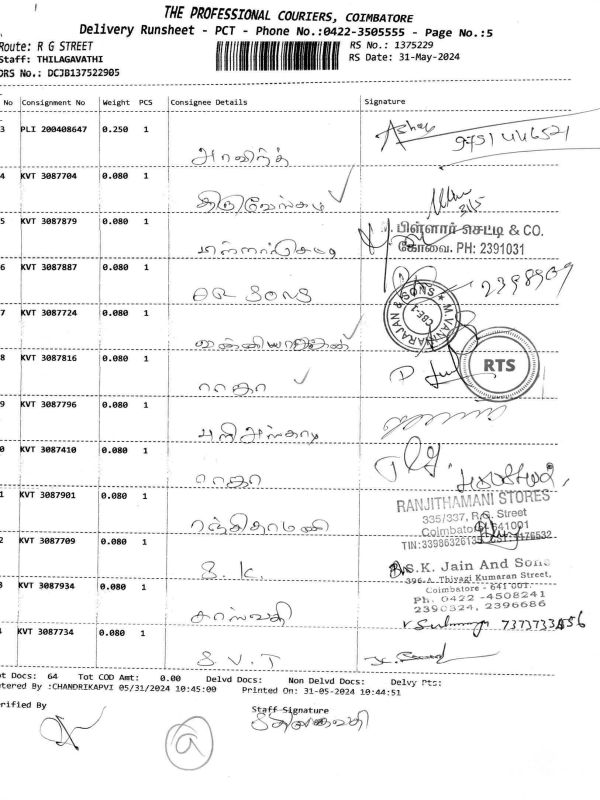 THE PROFESSIONAL COURIERS, COIMBATORE
Delivery Runsheet - PCT - Phone No.:0422-3505555 - Page No.:5
Route: R G STREET
RS No.: 1375229
Staff: THILAGAVATHI
RS Date: 31-May-2024
DRS No.: DCJB137522905
No Consignment No Weight PCS Consignee Details Signature
3 PLI 200408647 0.250 1
Ashok 9751446521
அரவிந்த்
4 KVT 3087704 0.080 1
31/5
5 KVT 3087879 0.080 1
பிள்ளார் செட்டி & CO.
கோவை. PH: 2391031
6 KVT 3087887 0.080 1
2398909
SONS
7 KVT 3087724 0.080 1
M. VANNARAJAN & SONS ★ CBE-1
8 KVT 3087816 0.080 1
RTS
ராதா
9 KVT 3087796 0.080 1
0 KVT 3087410 0.080 1
ராதா
1 KVT 3087901 0.080 1
RANJITHAMANI STORES
335/337, R.G. Street
Coimbatore 641001
TIN:33986326135
ரஞ்சிதாமணி
2 KVT 3087709 0.080 1
S. K.
S.K. Jain And Sons
396-A, Thiyagi Kumaran Street,
Coimbatore - 641 001.
Ph. 0422 - 4508241
2390324, 2396686
3 KVT 3087934 0.080 1
சரஸ்வதி
KVT 3087734 0.080 1
S. V. T
ot Docs: 64 Tot COD Amt: 0.00 Delvd Docs: Non Delvd Docs: Delvy Pts:
tered By :CHANDRIKAPVI 05/31/2024 10:45:00 Printed On: 31-05-2024 10:44:51
erified By
Staff Signature
a